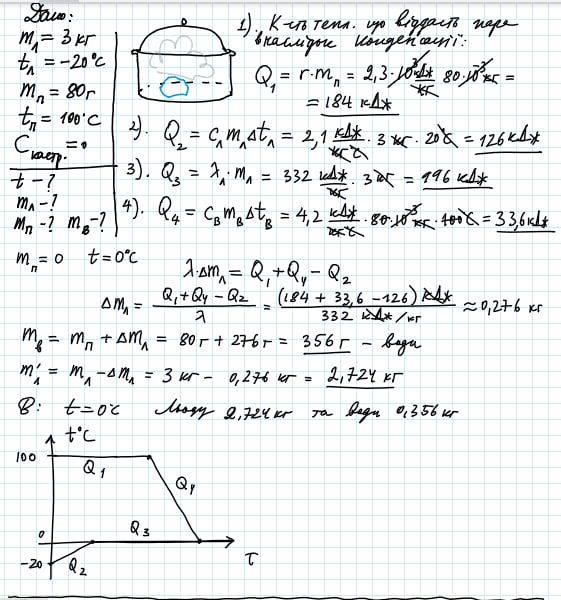 Дано:
m_л = 3 кг
t_л = −20°C
m_п = 80 г
t_п = 100°C
C_кастр. = 0
t − ?
m_л − ?
m_п − ? m_в − ?
1). К-сть тепл. що віддасть пара
внаслідок конденсації:
Q₁ = r · m_п = 2,3 · 10³ кДж/кг · 80 · 10⁻³ кг =
= 184 кДж
2). Q₂ = c_л m_л Δt_л = 2,1 кДж/кг°C · 3 кг · 20°C = 126 кДж
3). Q₃ = λ_л · m_л = 332 кДж/кг · 3 кг = 996 кДж
4). Q₄ = c_в m_в Δt_в = 4,2 кДж/кг°C · 80 · 10⁻³ кг · 100°C = 33,6 кДж
m_п = 0 t = 0°C
λ · Δm_л = Q₁ + Q₄ − Q₂
Δm_л = (Q₁ + Q₄ − Q₂)/λ = (184 + 33,6 − 126) кДж / 332 кДж/кг ≈ 0,276 кг
m_в = m_п + Δm_л = 80 г + 276 г = 356 г − води
m'_л = m_л − Δm_л = 3 кг − 0,276 кг = 2,724 кг
В: t = 0°C Льоду 2,724 кг та води 0,356 кг
t°C
100
Q₁
Q₄
0
Q₃
−20
Q₂
τ